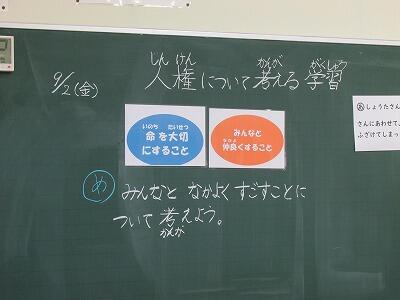 人権について考える学習
じんけん かんが がくしゅう
9/2(金)
いのち たいせつ
命を大切
にすること
みんなと
なかよ
仲良くすること
あ しょうたさん
さんにあわせて、
ふざけてしまっ
め みんなと なかよく すごすことに
ついて 考えよう。
かんが